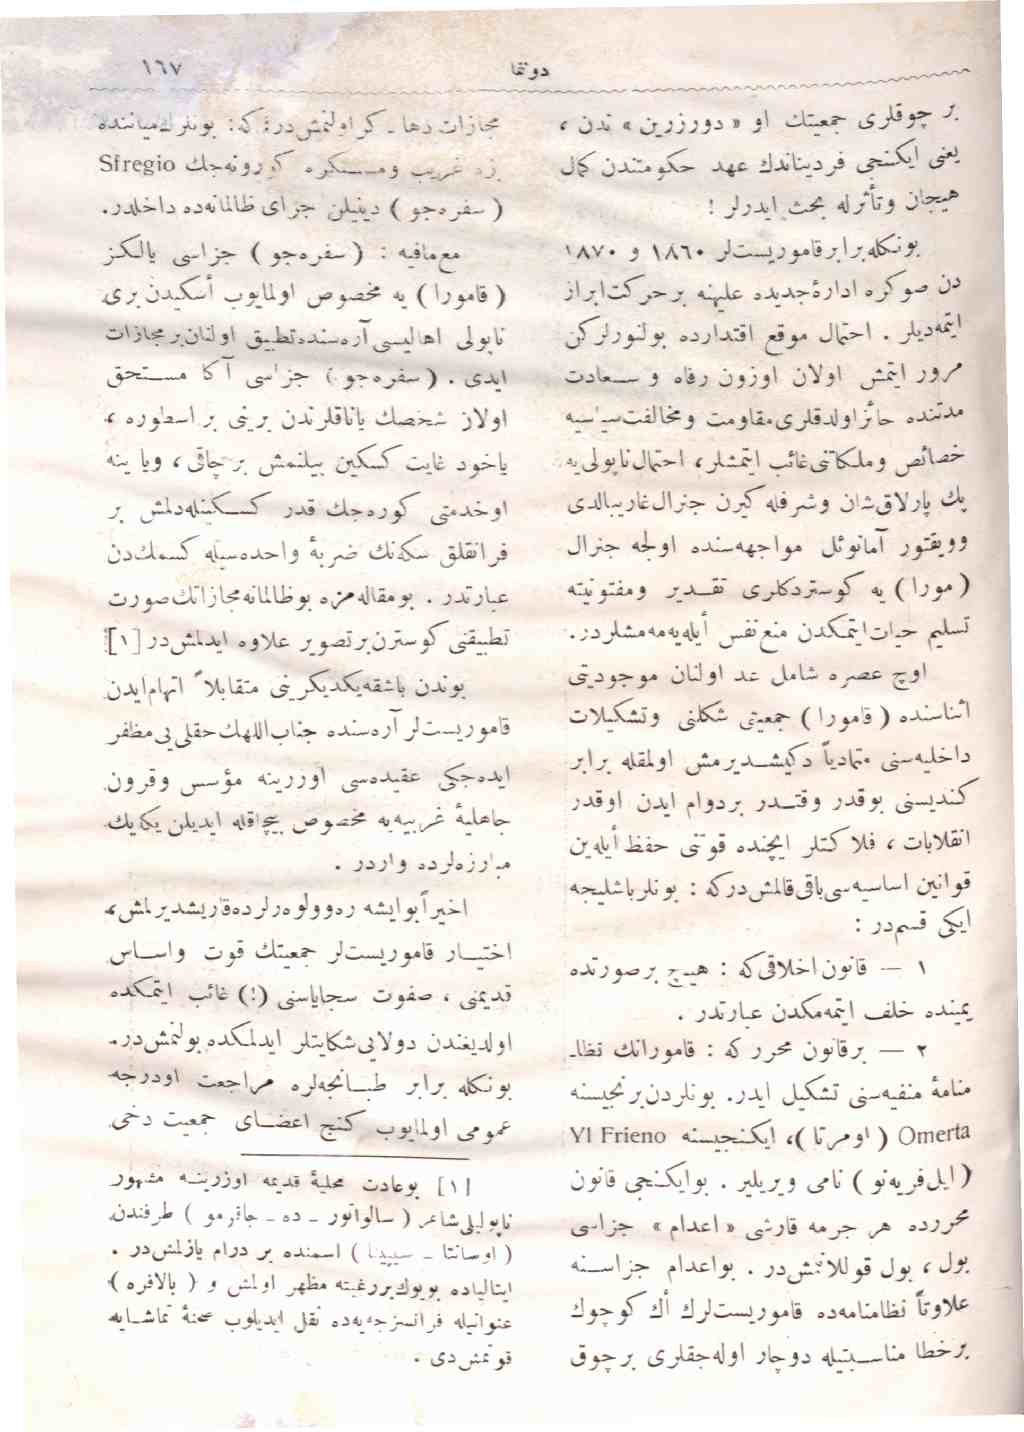 دوتنما
١٦٧
بر چوقلری جمعیتك او « دورزرین » ندن ،
یعنی ایكنجی فردیناندك عهد حكومتندن كمال
هیجان وتأثرله بحث ایدرلر !
بونكله برابر قاموریست‌لر ١٨٦٠ و ١٨٧٠
دن صوكره ادارۀ جدیده علیهنه بر حركت ابراز
ایتمه‌دیلر . احتمال موقع اقتدارده بولنورلركن
مرور ایتمش اولان اوزون رفاه و سعادت
مدتنده حائز اولدقلری مقاومت و مخالفت سیاسیه
خصائص وملكاتنی غائب ایتمشلر ، احتمال ناپولی‌یه
پك پارلاق شان وشرفله كیرن جنرال غاریبالدی
وویقتور آمانوئل مواجهه‌سنده اولجه جنرال
( مورا ) یه كوستردكلری تقدیر ومفتونیته
تسلیم حیات ایتمكدن منع نفس أیله‌یه‌مه‌مشلردر .
اوچ عصره شامل عد اولنان موجودیتی
اثناسنده ( قامورا ) جمعیتی شكلنی وتشكیلات
داخلیه‌سنی متمادیاً دكیشدیرمش اولمقله برابر
كندیسنی بوقدر وقتدر بردوام ایدن اوقدر
انقلابات ، فلاكتلر ایچنده قوتنی حفظ أیله‌ین
قوانین اساسیه‌سی باقی قالمش‌دركه : بونلر باشلیجه
ایكی قسم‌در :
١ — قانون اخلاقی كه : هیچ بر صورتده
یمیننده خلف ایتمه‌مكدن عبارتدر .
٢ — بر قانون محرر كه : قامورانك نظا-
منامۀ منفیه‌سنی تشكیل ایدر. بونلردن برنجیسنه
Omerta ( اومرتا )، ایكنجیسنه Yl Frieno
( ایل‌فریه‌نو ) نامی ویریلیر . بوایكنجی قانون
محررده هر جرمه قارشی « اعدام » جزاسی
بول ، بول قوللانمش‌در . بواعدام جزاسنه
علاوتاً نظامنامه‌ده قاموریست‌لرك اك كوچوك
برخطا مناسبتیله دوچار اوله‌جقلری بر چوق
مجازات دها ذكر اولنمش‌در كه : بونلرك میاننده
بزه غریب ومستكره كورونه‌جك Sfregio
( سفره‌جو ) دینیلن جزای ظالمانه‌ده داخلدر.
مع‌مافیه : ( سفره‌جو ) جزاسی یالكز
( قامورا ) یه مخصوص اولمایوب أسكیدن بری
ناپولی اهالیسی آره‌سنده تطبیق اولنان بر مجازات
ایدی . ( سفره‌جو ) جزاسی آكا مستحق
اولان شخصك یاناقلرندن برینی بر اسطوره ،
یاخود غایت كسكین بیلنمش بر چاقی ، ویا ینه
اوخدمتی كوره‌جك قدر كسكینله‌دلمش بر
فرانقلق سكه‌نك ضربۀ واحده‌سیله كسمك‌دن
عبارتدر . بومقاله‌مزه بوظالمانه مجازاتك صورت
تطبیقنی كوسترن بر تصویر علاوه ایدلمش‌در [١]
بوندن باشقه یكدیكرینی متقابلاً اتهام ایدن
قاموریست‌لر آره‌سنده جناب‌اللهك حقلی‌یی مظفر
ایده‌جكی عقیده‌سی اوزرینه مؤسس وقرون
جاهلیۀ غربیه‌یه مخصوص بیچاقله ایدیلن یكه‌یك
مبارزه‌لرده واردر .
اخیراً بوایشه ره‌وولوه‌رلرده قاریشدیرلمش ،
اختیار قاموریست‌لر جمعیتك قوت واساس
قدیمنی ، صفوت سجایاسنی (!) غائب ایتمكده
اولدیغندن دولایی شكایتلر ایدلمكده بولنمش‌در.
بونكله برابر طبانجه‌لره مراجعت اودرجه
عمومی اولمایوب كنج اعضای جمعیت دخی
[١] بوعادت محلیۀ قدیمه اوزرینه مشهور
ناپولیلی شاعر ( سالواتور - ده - جاقومو ) طرفندن
( اوسانتا - سپینا ) اسمنده بر درام یازلمش‌در .
ایتالیاده بویوك بررغبته مظهر اولمش و ( بالافره )
عنوانیله فرانسزجه‌یه‌ده نقل ایدیلوب صحنۀ تماشایه
قونمش‌دی .